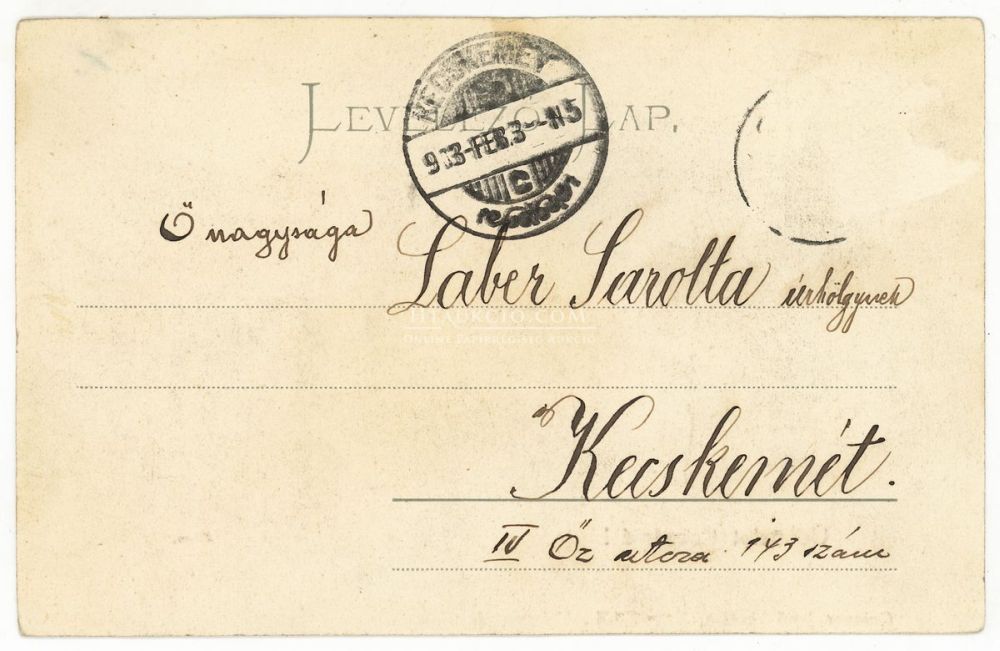 LEVELEZŐ-LAP.
KECSKEMÉT
903-FEB.3-N5
C
Ő nagysága
Laber Sarolta úrhölgynek
HIAUKCIO.COM
ONLINE PAPÍRRÉGISÉG AUKCIÓ
Kecskemét.
IV Őz utcza 143 szám